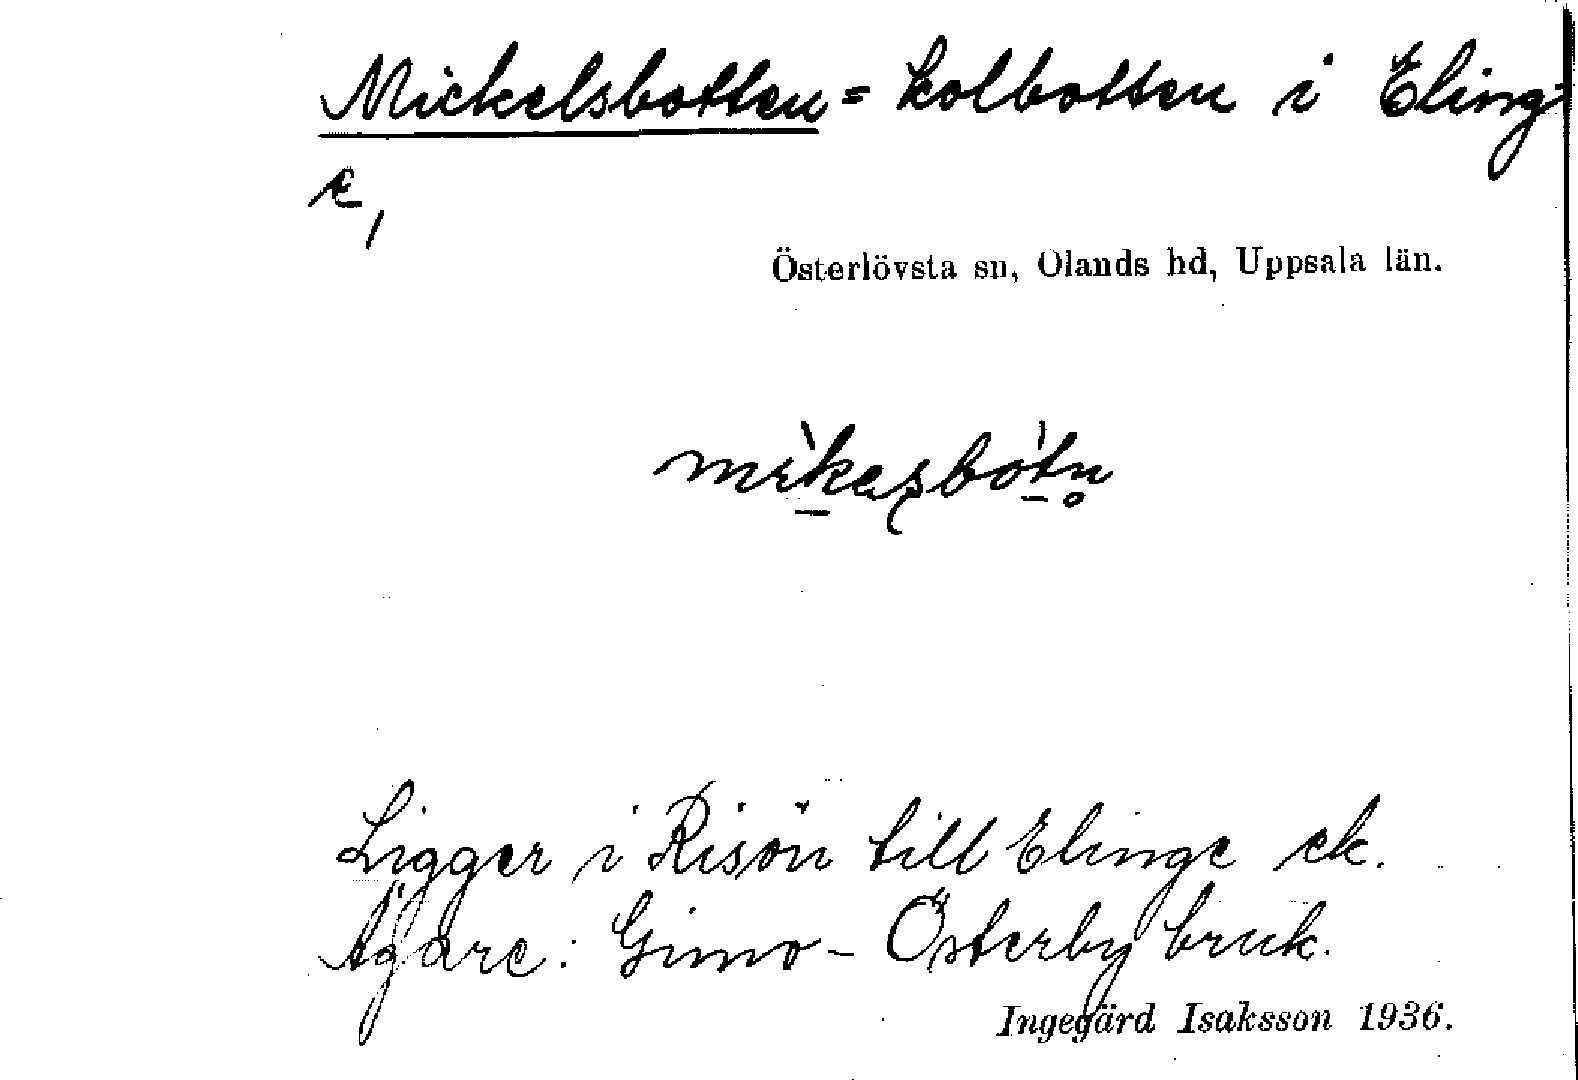 Mickelsbotten = kolbotten i Eling-
e,
Österlövsta sn, Olands hd, Uppsala län.
Ligger i Risön till Elinge ek.
Ägare: Gimo-Österby bruk.
Ingegärd Isaksson 1936.